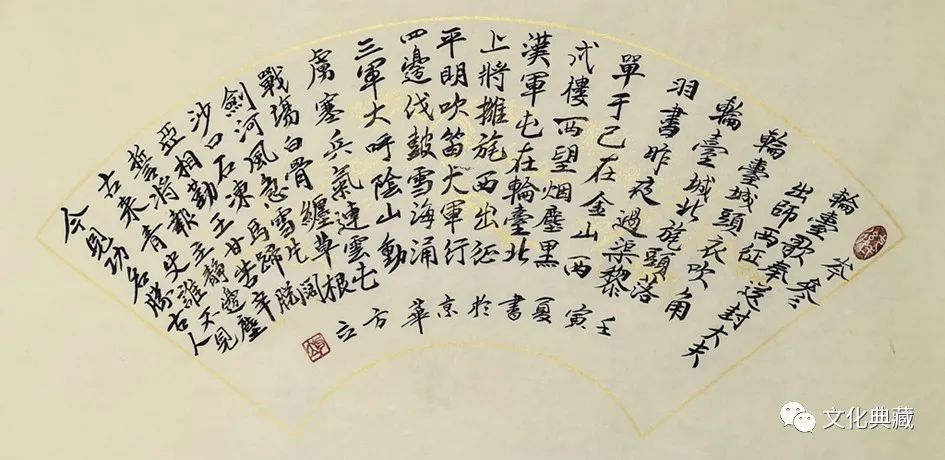 輪臺歌奉送封大夫
出師西征
岑參
輪臺城頭夜吹角
輪臺城北旄頭落
羽書昨夜過渠黎
單于已在金山西
戍樓西望烟塵黑
漢軍屯在輪臺北
上將擁旄西出征
平明吹笛大軍行
四邊伐鼓雪海涌
三軍大呼陰山動
虜塞兵氣連雲屯
戰場白骨纏草根
劍河風急雪片闊
沙口石凍馬蹄脫
亞相勤王甘苦辛
誓將報主靜邊塵
古來青史誰不見
今見功名勝古人
壬寅夏書於京華方立
文化典藏